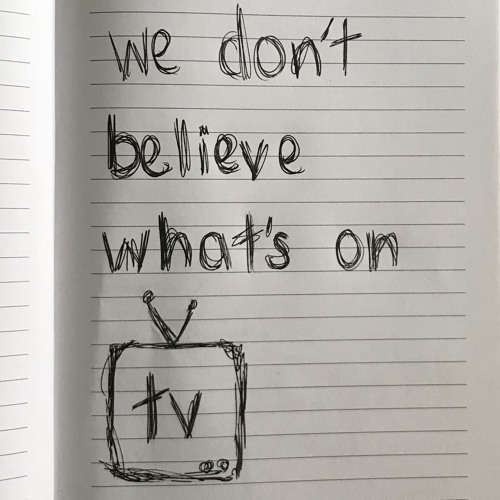 we don't
believe
what's on
tv